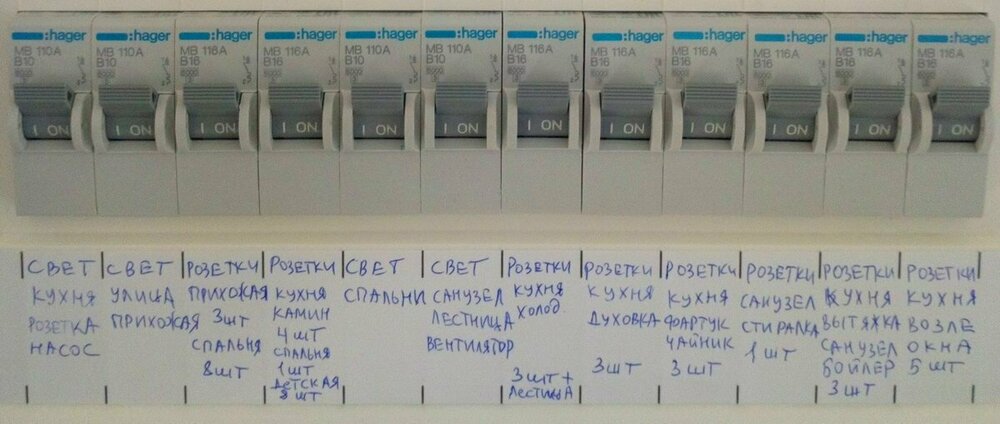 :hager :hager :hager :hager :hager :hager :hager :hager :hager :hager :hager :hager
MB 110A MB 110A MB 116A MB 116A MB 110A MB 110A MB 116A MB 116A MB 116A MB 116A MB 116A MB 116A
B10 B10 B16 B16 B10 B10 B16 B16 B16 B16 B16 B16
I ON I ON I ON I ON I ON I ON I ON I ON I ON I ON I ON I ON
СВЕТ
КУХНЯ
РОЗЕТКА
НАСОС
СВЕТ
УЛИЦА
ПРИХОЖАЯ
РОЗЕТКИ
ПРИХОЖАЯ
3шт
СПАЛЬНЯ
8шт
РОЗЕТКИ
КУХНЯ
КАМИН
4 шт
СПАЛЬНЯ
1 шт
ДЕТСКАЯ
8 шт
СВЕТ
СПАЛЬНИ
СВЕТ
САНУЗЕЛ
ЛЕСТНИЦА
ВЕНТИЛЯТОР
РОЗЕТКИ
КУХНЯ
ХОЛОД.
3 шт +
ЛЕСТИЦА
РОЗЕТКИ
КУХНЯ
ДУХОВКА
3 шт
РОЗЕТКИ
КУХНЯ
ФАРТУК
ЧАЙНИК
3 шт
РОЗЕТКИ
САНУЗЕЛ
СТИРАЛКА
1 шт
РОЗЕТКИ
КУХНЯ
ВЫТЯЖКА
САНУЗЕЛ
БОЙЛЕР
3 шт
РОЗЕТКИ
КУХНЯ
ВОЗЛЕ
ОКНА
5 шт